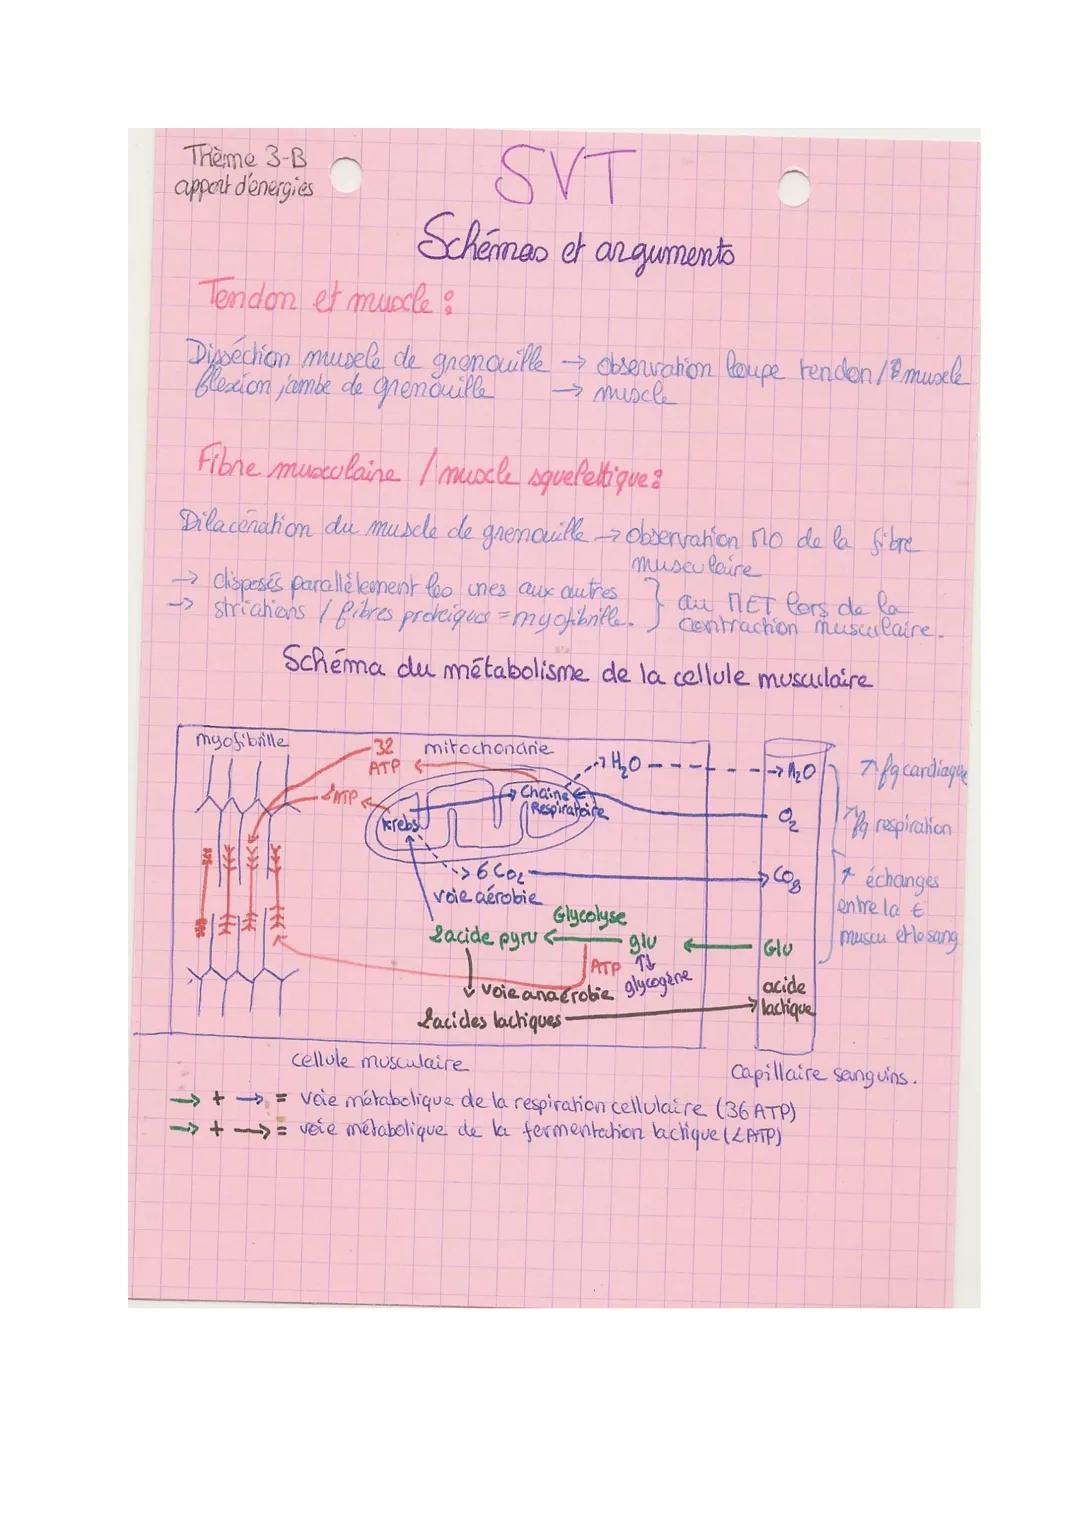 Thème 3-B
apport d'énergies
SVT
Schémas et arguments
Tendon et muscle :
Disséction muscle de grenouille → observation loupe tendon / muscle
flexion jambe de grenouille → muscle
Fibre musculaire / muscle squelettique :
Dilacération du muscle de grenouille → Observation MO de la fibre
musculaire
→ disposés parallèlement les unes aux autres
→ striations / fibres proteiques = myofibrille.
au MET lors de la
contraction musculaire.
Schéma du métabolisme de la cellule musculaire
myofibrille
32
ATP
mitochondrie
H₂O
H₂O
↗ fq cardiaque
2ATP
Chaîne
Respiratoire
Krebs
O₂
↗ fq respiration
6 CO₂
CO₂
↗ échanges
entre la ¢
muscu et le sang
voie aérobie
Glycolyse
2 acide pyru
glu
Glu
ATP
↑↓
glycogène
voie anaérobie
2 acides lactiques
acide
lactique
cellule musculaire
Capillaire sanguins.
→ + → = voie métabolique de la respiration cellulaire (36 ATP)
→ + → = voie métabolique de la fermentation lactique (2ATP)